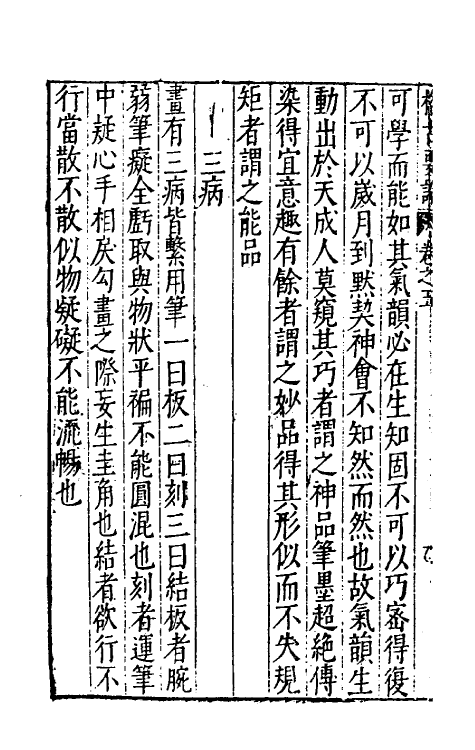 可學而能如其氣韻必在生知固不可以巧宻得復
不可以歲月到默契神會不知然而然也故氣韻生
動出於天成人莫窺其巧者謂之神品筆墨超絶傳
染得宜意趣有餘者謂之妙品得其形似而不失規
矩者謂之能品
三病
畫有三病皆繫用筆一曰板二曰刻三曰結板者腕
弱筆癡全虧取與物狀平褊不能圓混也刻者運筆
中疑心手相戾勾畫之際妄生圭角也結者欲行不
行當散不散似物凝礙不能流暢也